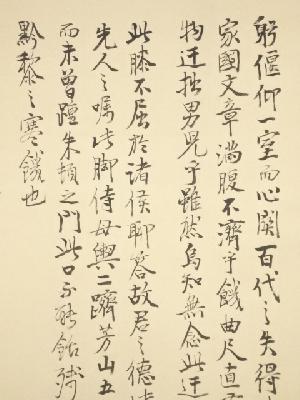 躬偃仰一室而心關百代之失得
家國文章滿腹不濟乎餓曲尺直
物迂拙男児乎雖然烏知無念此迂
此膝不屈於諸侯聊答故君之德
先人之嘱此脚侍母輿二躋芳山五
而未曾朱頓之門此口不能餂殘
黔黎之寒餓也